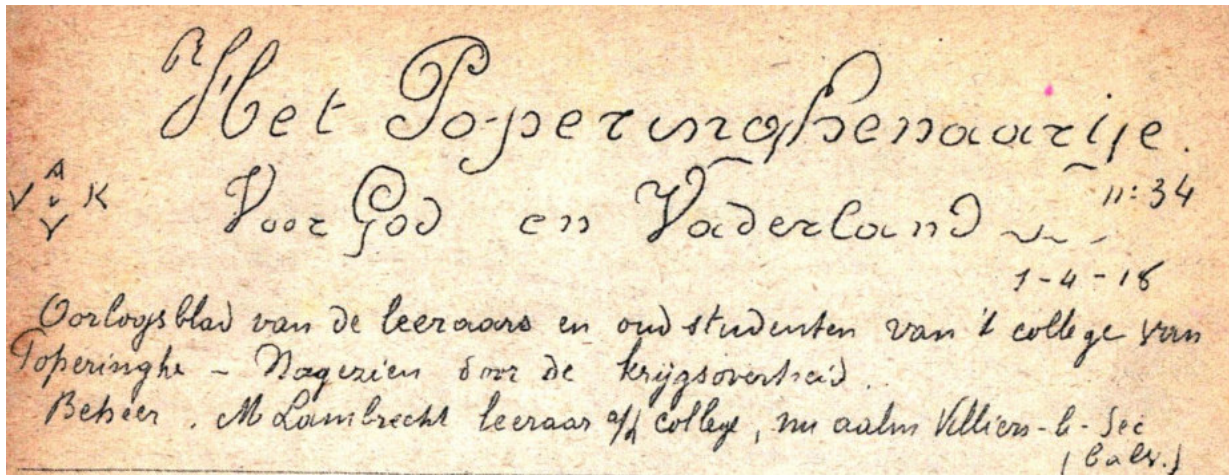 Het Poperinghenaartje.
A
V V K
V
n: 34
Voor God en Vaderland
1-4-18
Oorlogsblad van de leeraars en oud studenten van 't college van
Poperinghe - Nagezien door de krijgsoverheid.
Beheer. M Lambrecht leeraar a/h college, nu aalm Villiers-le-Sec
(Calv.)